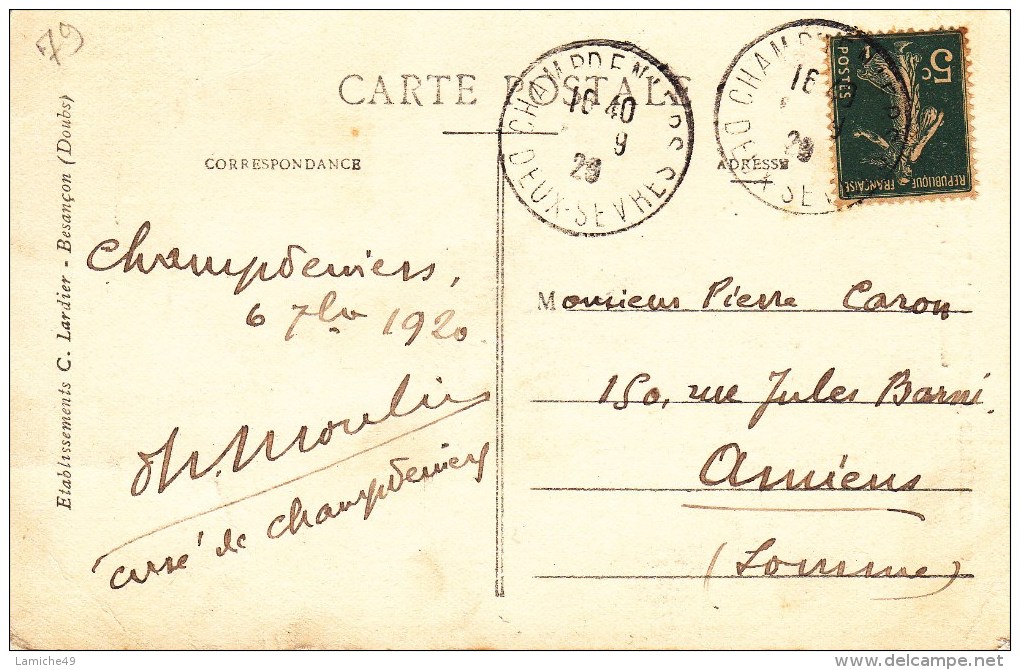 79
CARTE POSTALE
CHAMPDENIERS
16 40
9
DEUX-SEVRES
CHAMPDENIERS
16 40
9
DEUX-SEVRES
5c
POSTES
REPUBLIQUE FRANCAISE
CORRESPONDANCE
ADRESSE
Etablissements C. Lardier - Besançon (Doubs)
Champdeniers,
6 7bre 1920
Moulin
curé de Champdeniers
Monsieur Pierre Caron
150, rue Jules Barni
Amiens
(Somme)
Lamiche49
http://www.delcampe.net